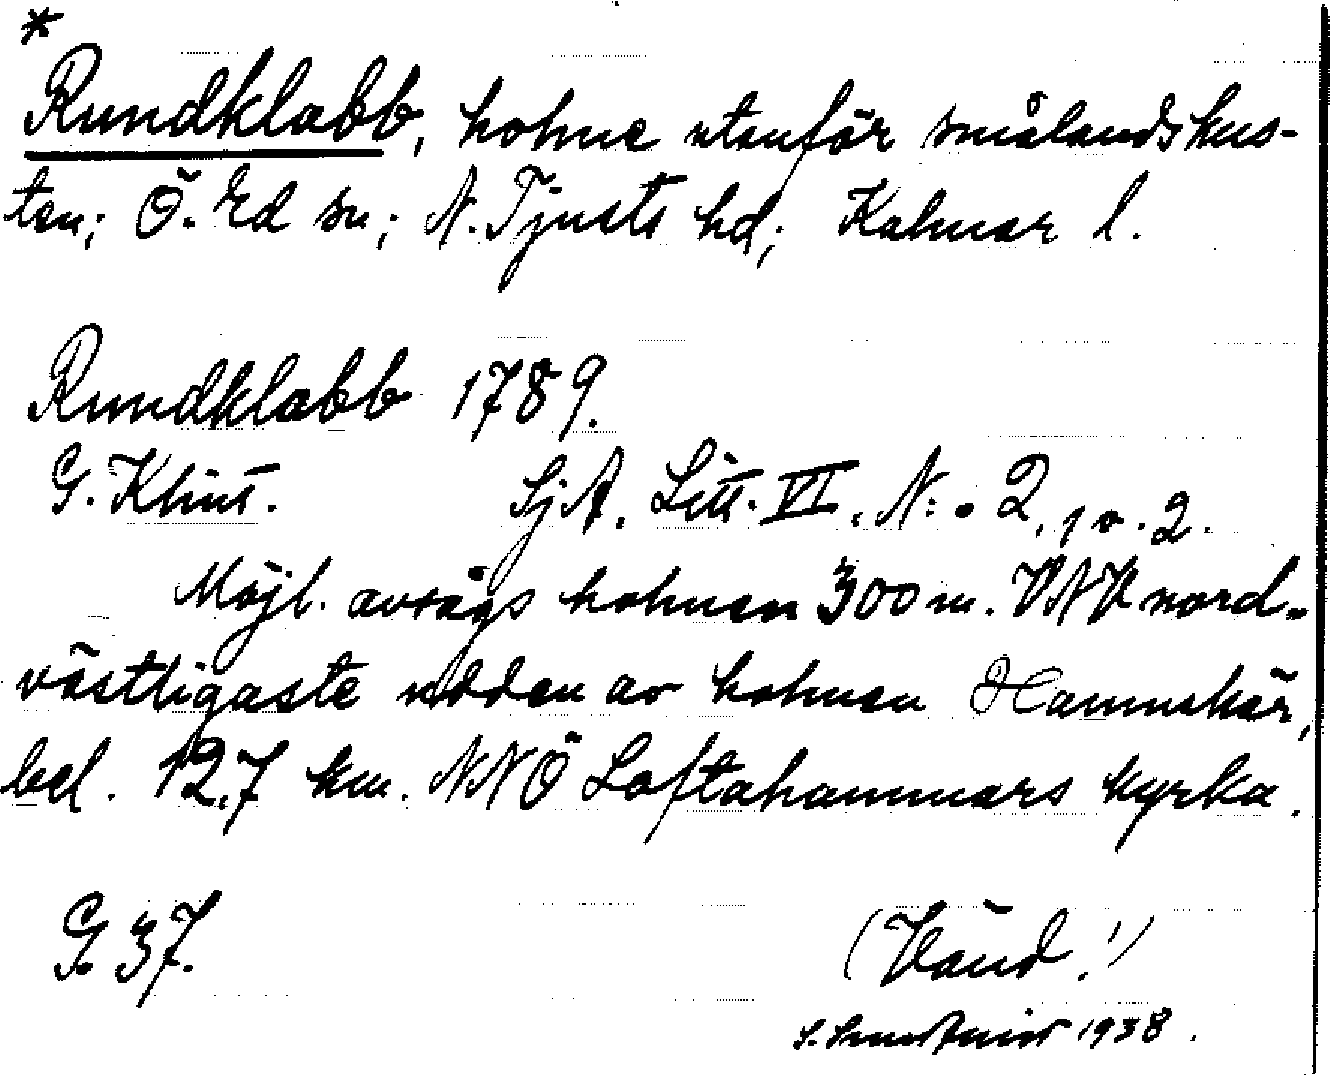 *
Rundklabb, holme utanför smålandskus-
ten; Ö. Ed sn; N. Tjusts hd; Kalmar l.
Rundklabb 1789.
G. Klint. SjA. Litt. VI. N:o 2, 2.
Möjl. avsågs holmen 300 m. VNV nord-
västligaste udden av holmen Hamnskär,
bel. 12,7 km. NNÖ Loftahammars kyrka.
G. 37.
(Vänd!)
S. 1938.